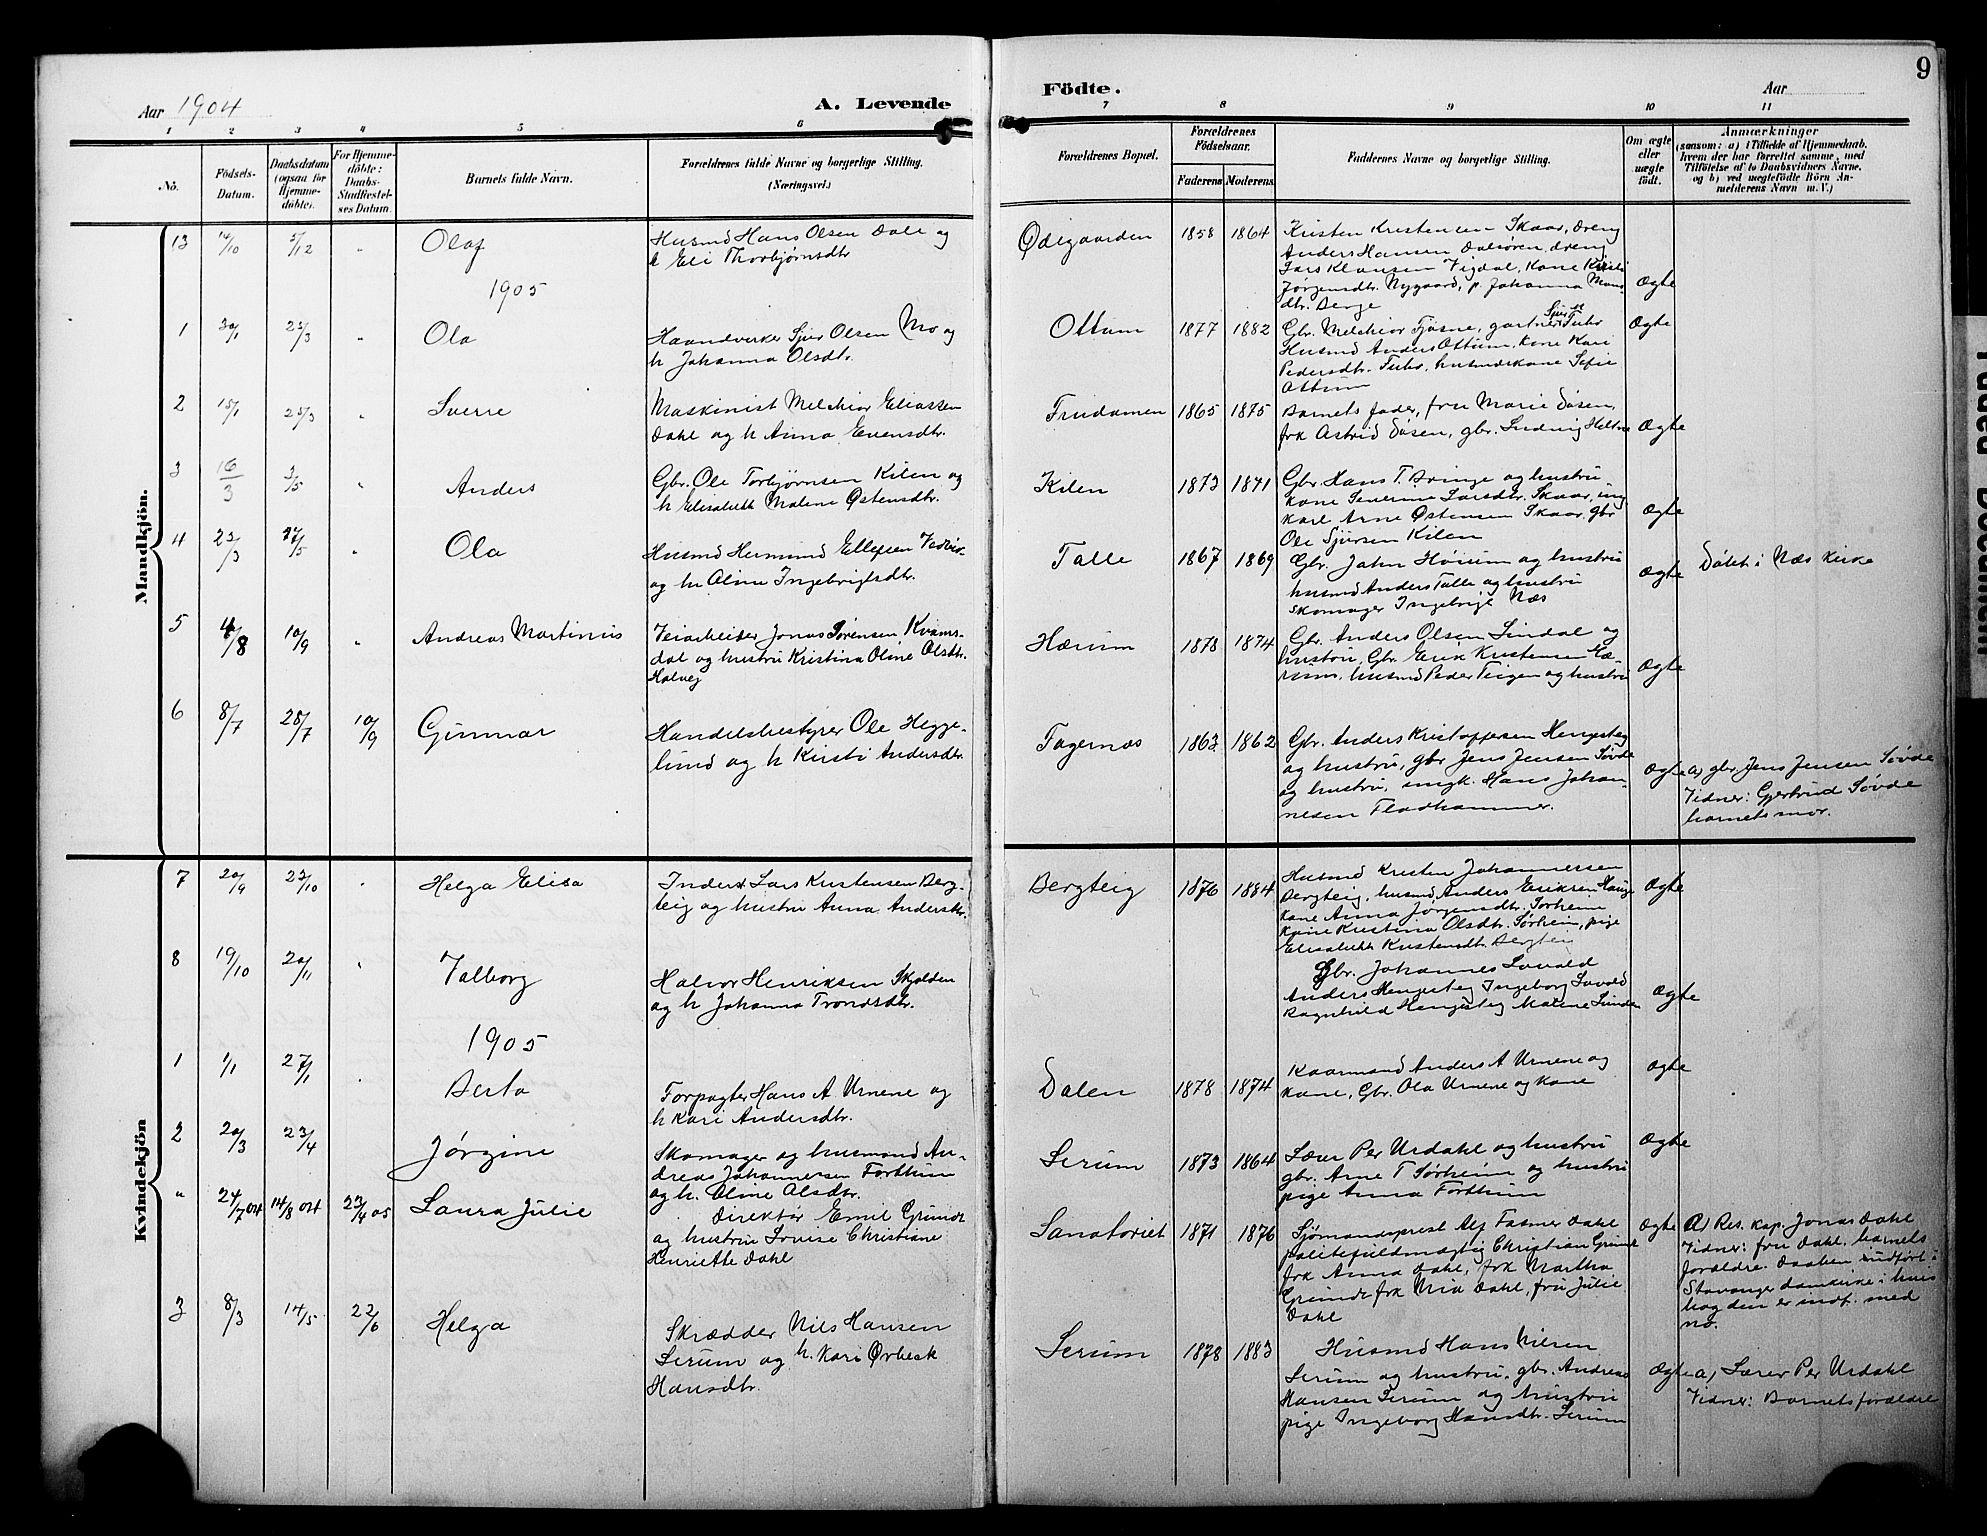 Aar 1904
A. Levende
Födte.
Aar
9
1 2 3 4 5 6 7 8 9 10 11
No.
Födsels-
Datum.
Daabsdatum
(ogsaa for
Hjemme-
döbte).
For Hjemme-
döbte:
Daabs-
Stadfæstel-
ses Datum.
Barnets fulde Navn.
Forældrenes fulde Navne og borgerlige Stilling.
(Næringsvei.)
Forældrenes Bopæl.
Forældrenes
Födselsaar.
Faderens Moderens
Faddernes Navne og borgerlige Stilling.
Om ægte
eller
uægte
født.
Anmærkninger
(saasom: a) i Tilfælde af Hjemmedaab,
hvem der har forrettet samme, med
Tilföielse af to Daabsvidners Navne,
og b) ved uægtefödte Börn An-
melderens Navn m. V.)
Mandkjön.
13 14/10 5/12 " Olaf
Husmd Hans Olsen Dale og
h Eli Thorbjørnsdtr
Ødegaarden 1858 1864
Kristen Kristensen Skaar, dreng
Anders Hansen Dalsøren, dreng
Lars Klausen Vigdal, kone Kirsti
Jørgensdtr. Nygaard, p. Johanna Mons-
dtr. Berge
Ægte
1905
1 20/1 25/3 " Ola
Haandverker Sjur Olsen Mo og
h Johanna Olsdtr.
Ottum 1877 1882
Gbr. Melchior Fjøsne, gartner Sjur Fuhr
Husmd Anders Ottum, kone Kari
Pedersdtr. Fuhr, husmdskone Sofie
Ottum
Ægte
2 15/1 25/3 " Sverre
Maskinist Melchior Eliassen
Dahl og h Anna Evensdtr.
Frudamen 1865 1875
Barnets fader, fru Marie Døsen,
frk Astrid Døsen, gbr. Ludvig
Ægte
3 16/3 3/5 " Anders
Gbr. Ole Torbjørnsen Kilen og
h Elisabeth Malene Østensdtr.
Kilen 1873 1871
Gbr Hans T. Bringe og hustru
kone Severine Larsdtr. Skaar, ung
karl Arne Østensen Skaar, gbr
Ole Sjursen Kilen
Ægte
4 22/3 27/5 " Ola
Husmd Hermund Ellefsen
og h Oline Ingebrigtsdtr.
Talle 1867 1869
Gbr. John Høium og hustru
husmd Anders Talle og hustru
Skomager Ingebrigt Næs
Ægte
Døbt i Næs kirke
5 4/8 10/9 " Andreas Martinus
Veiarbeider Jonas Sørensen Kvams-
dal og hustru Kristina Oline Olsdtr.
Halvej
Hærum 1878 1874
Gbr Anders Olsen Lindal og
hustru, Gbr Erik Kristensen Hæ-
rum, husmd Peder Teigen og hustru
Ægte
6 8/7 25/7 10/9 Gunnar
Handelsbestyrer Ole Hegge-
lund og h Kirsti Andersdtr.
Fagernæs 1863 1862
Gbr. Anders Kristoffersen Hengesteg
og hustru, gbr Jens Jensen Søvde
og hustru, ungk. Hans Johan-
nesen Fladhammer.
Ægte
a, gbr. Jens Jensen Søvde
Vidner: Gjertrud Søvde
barnets mor.
Kvindekjön
7 20/9 23/10 " Helga Elisa
Inderst Lars Kristensen Berg-
teig og hustru Anna Andersdtr.
Bergteig 1876 1884
Husmd Kristen Johannessen
Bergteig, husmd Anders Eriksen Hauge
kone Anna Jørgensdtr. Sørheim
kone Kristina Olsdtr. Sørheim, pige
Elisabeth Kristensdtr. Bergteig
Ægte
8 19/10 20/11 " Valborg
Halvor Henriksen Skjolden
og h Johanna Trondsdtr.
Gbr. Johannes Lovald
Anders Hengesteg Ingeborg Lovald
Ragnhild Hengesteg Malene Sunde
Ægte
1905
1 1/1 27/1 . Berta
Forpagter Hans A Urnene og
h Kari Andersdtr.
Dalen 1878 1874
Kaarmand Anders A Urnene og
kone, Gbr. Ola Urnene og kone
Ægte
2 20/3 23/4 Jørgine
Skomager og husmand An-
dreas Johannesen Forthun
og h. Oline Olsdtr.
Serum 1873 1864
Lærer Per Urdahl og hustru
gbr. Arne T Sørheim og hustru
pige Anna Forthun
Ægte
" 24/7 04 14/8 04 23/4 05 Laura Julie
Direktør Emil Grundt
og hustru Lovise Christiane
Henriette Dahl
Sanatoriet 1871 1876
Sjømandsprest Alf Fasmer Dahl
politifuldmægtig Christian Grundt
frk Anna Dahl, frk Martha
Grundt frk Mia Dahl, fru Julie
Dahl
Ægte
a) Res. kap. Jonas Dahl
Vidner: fru Dahl, barnets
forældre. Daaben indført i
Stavanger domkirke i hvis
bog den er indf. med
no.
3 8/3 14/5 22/6 Helga
Skrædder Nils Hansen
Serum og h. Kari Ørbeck
Hansdtr.
Serum 1878 1883
Husmd Hans Nilsen
Serum og hustru, gbr. Andreas
Hansen Serum og hustru
pige Ingeborg Hansdtr. Serum
Ægte
a, Lærer Per Urdahl
Vidner: Barnets forældre